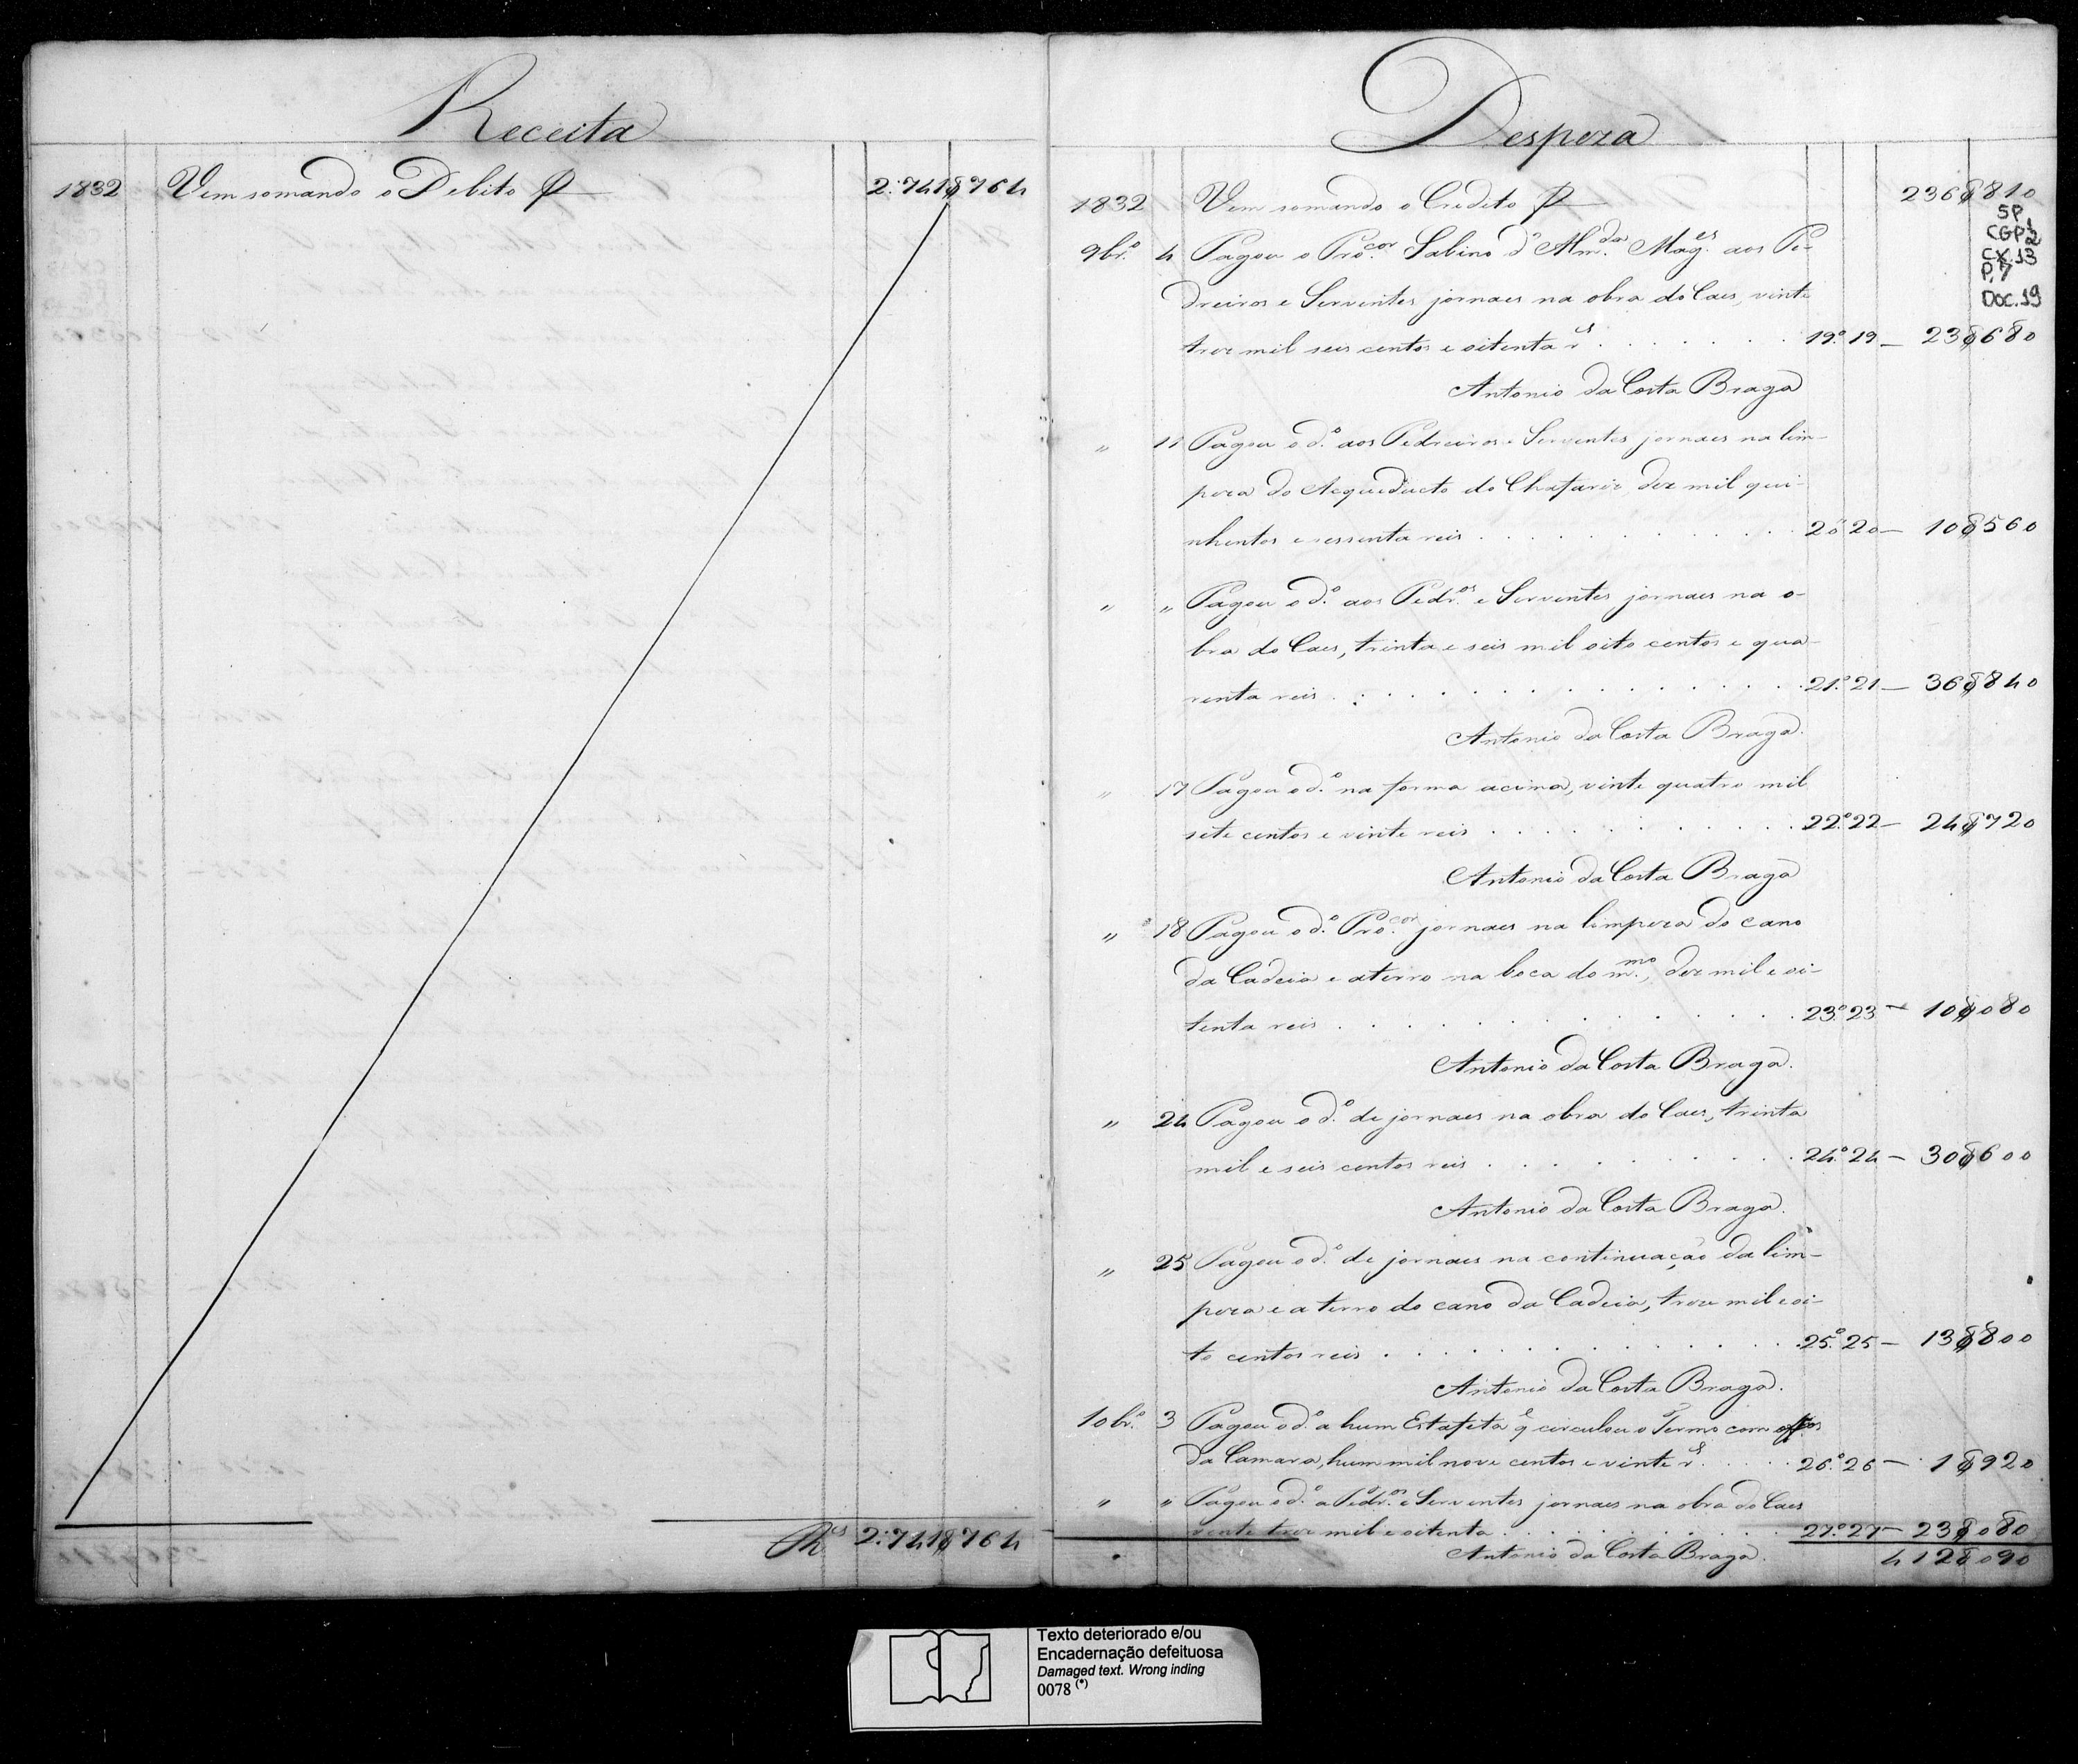 Receita
1832 Vem somando o Debito P 2:741$764
Rs 2:741$764
Despeza
1832 Vem somando o Credito P 236$810
SP
CGP1/2
CX.13
P.7
DOC.19
9br.o 4 Pagou o Pro.cor Sabino d'Alm.da Mag.es aos Pe-
dreiros e Serventes jornaes na obra do Caes, vinte
trez mil seis centos e oitenta r.s 19.o 19 — 23$680
Antonio da Costa Braga
" 11 Pagou o d.o aos Pedreiros e Serventes jornaes na lim-
peza do Acqueducto do Chafariz, dez mil qui-
nhentos e sessenta reis 20.o 20 — 10$560
" " Pagou o d.o aos Pedr.os e Serventes jornaes na o-
bra do Caes, trinta e seis mil oito centos e qua-
renta reis 21.o 21 — 36$840
Antonio da Costa Braga.
" 17 Pagou o d.o na forma acima, vinte quatro mil
sete centos e vinte reis 22.o 22 — 24$720
Antonio da Costa Braga
" 18 Pagou o d.o Pro.cor jornaes na limpeza do cano
da Cadeia e aterro na boca do m.mo, dez mil e oi-
tenta reis 23.o 23 — 10$080
Antonio da Costa Braga.
" 24 Pagou o d.o de jornaes na obra do Caes, trinta
mil e seis centos reis 24.o 24 — 30$600
Antonio da Costa Braga.
" 25 Pagou o d.o de jornaes na continuação da lim-
peza e aterro do cano da Cadeia, treze mil e oi-
to centos reis 25.o 25 — 13$800
Antonio da Costa Braga.
10br.o 3 Pagou o d.o a hum Estafeta q circulou o Termo com off.os
da Camara, hum mil nove centos e vinte r.s 26.o 26 — 1$920
" " Pagou o d.o a Pedr.os e Serventes jornaes na obra do Caes
vente trez mil e oitenta 27.o 27 — 23$080
Antonio da Costa Braga. 412$090
Texto deteriorado e/ou
Encadernação defeituosa
Damaged text. Wrong inding
0078 (*)